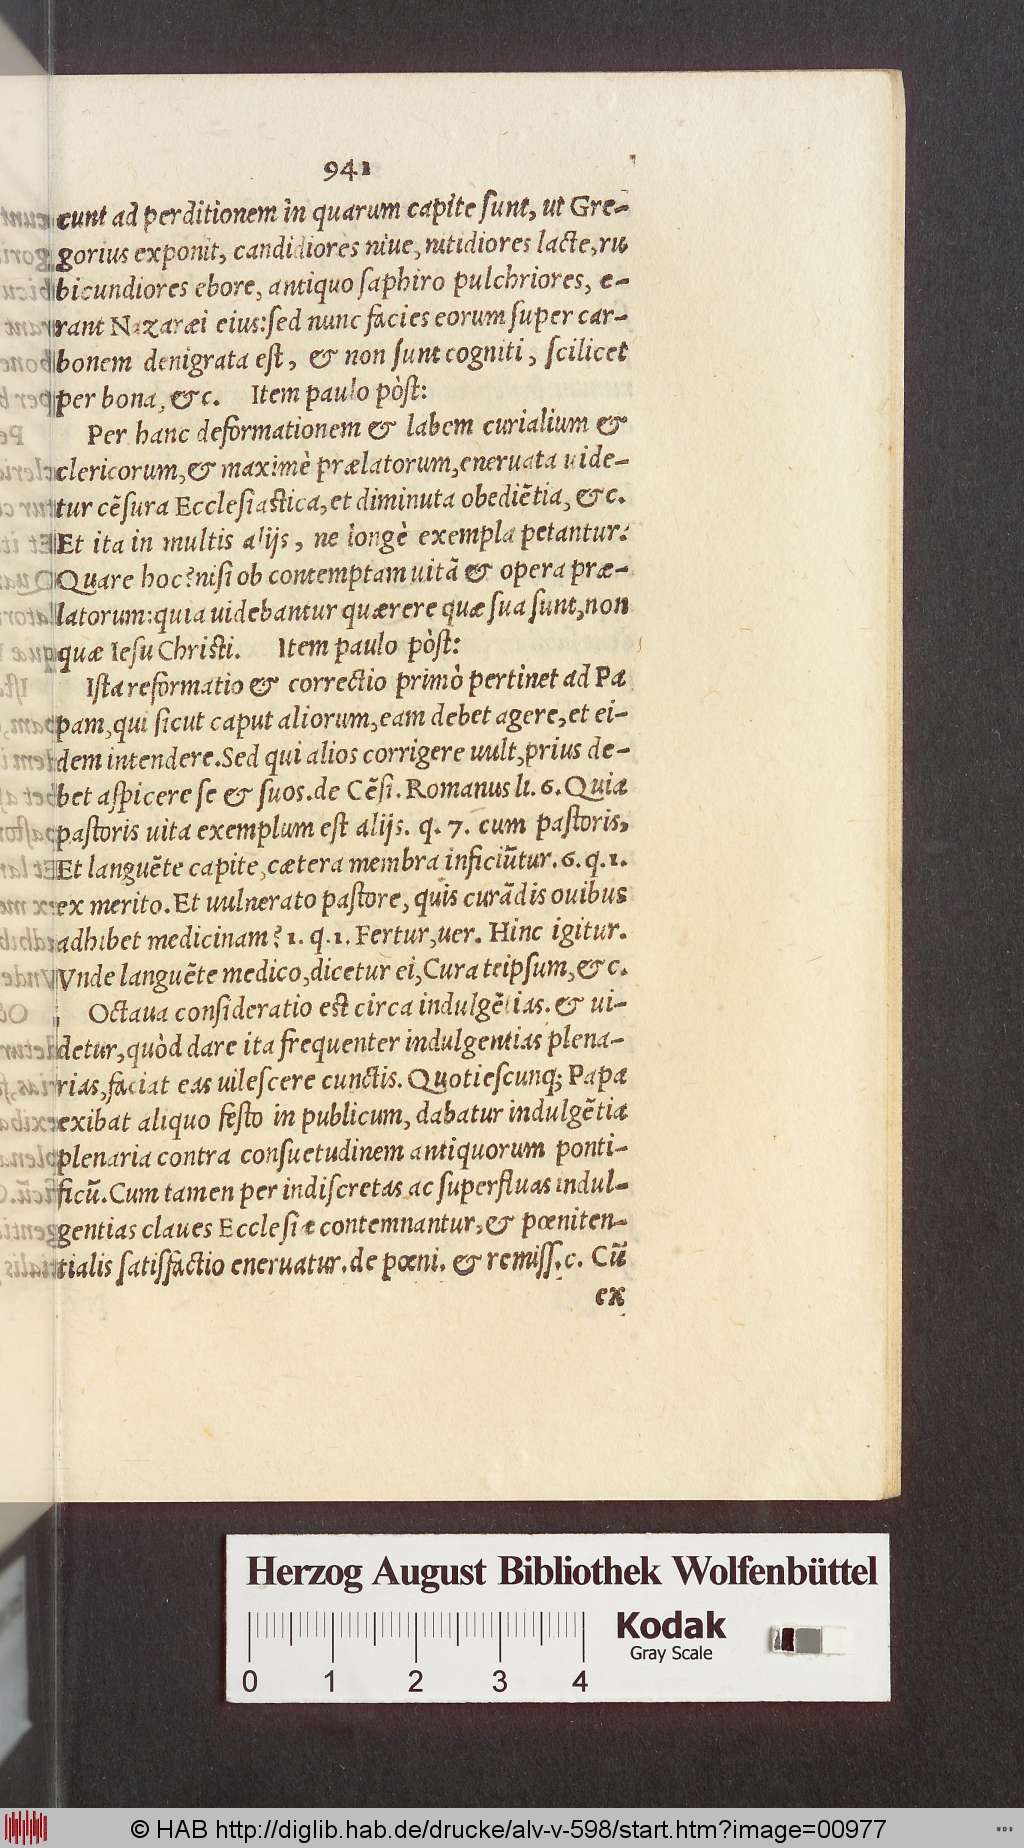 941
cunt ad perditionem in quarum capite sunt, ut Gre-
gorius exponit, candidiores niue, nitidiores lacte, ru
bicundiores ebore, antiquo saphiro pulchriores, e-
rant Nazaræi eius: sed nunc facies eorum super car-
bonem denigrata est, & non sunt cogniti, scilicet
per bona, &c. Item paulo pòst:
Per hanc deformationem & labem curialium &
clericorum, & maximè prælatorum, eneruata uide-
tur cẽsura Ecclesiastica, et diminuta obediẽtia, &c.
Et ita in multis alijs, ne longè exempla petantur:
Quare hoc? nisi ob contemptam uitã & opera præ-
latorum: quia uidebantur quærere quæ sua sunt, non
quæ Iesu Christi. Item paulo pòst:
Ista reformatio & correctio primò pertinet ad Pa
pam, qui sicut caput aliorum, eam debet agere, et ei-
dem intendere. Sed qui alios corrigere uult, prius de-
bet aspicere se & suos. de Cẽsi. Romanus li. 6. Quia
pastoris uita exemplum est alijs. q. 7. cum pastoris,
Et languẽte capite, cætera membra inficiũtur. 6. q. 1.
ex merito. Et uulnerato pastore, quis curãdis ouibus
adhibet medicinam? 1. q. 1. Fertur, uer. Hinc igitur.
Vnde languẽte medico, dicetur ei, Cura teipsum, &c.
Octaua consideratio est circa indulgẽtias. & ui-
detur, quòd dare ita frequenter indulgentias plena-
rias, faciat eas uilescere cunctis. Quotiescunq; Papa
exibat aliquo festo in publicum, dabatur indulgẽtia
plenaria contra consuetudinem antiquorum ponti-
ficũ. Cum tamen per indiscretas ac superfluas indul-
gentias claues Ecclesiæ contemnantur, & pœniten-
tialis satisfactio eneruatur. de pœni. & remiss. c. Cũ
ex
Herzog August Bibliothek Wolfenbüttel
Kodak
Gray Scale
0 1 2 3 4
© HAB http://diglib.hab.de/drucke/alv-v-598/start.htm?image=00977